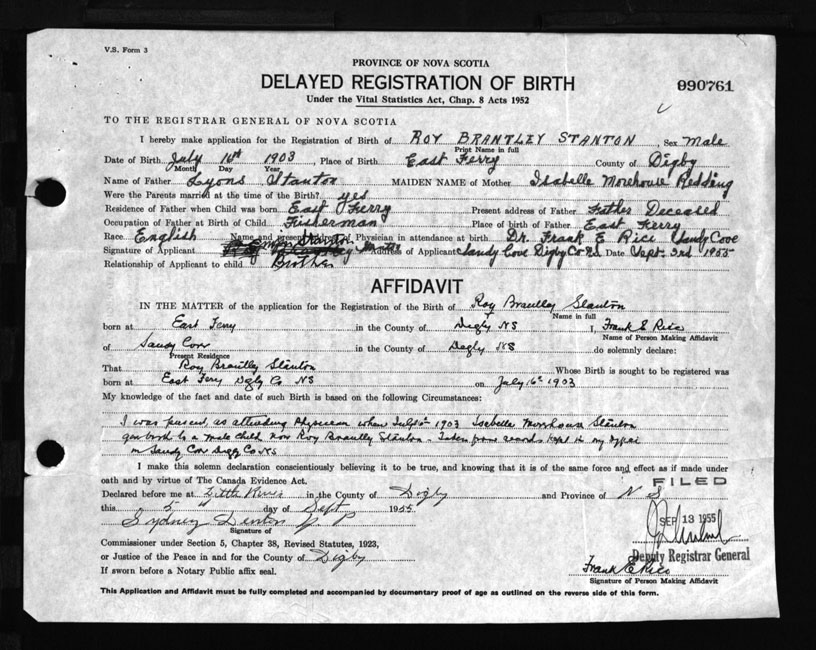 V.S. Form 3
PROVINCE OF NOVA SCOTIA
DELAYED REGISTRATION OF BIRTH
990761
Under the Vital Statistics Act, Chap. 8 Acts 1952
TO THE REGISTRAR GENERAL OF NOVA SCOTIA
I hereby make application for the Registration of Birth of ROY BRANTLEY STANTON, Sex Male
Print Name in full
Date of Birth July 16th 1903, Place of Birth East Ferry County of Digby
Month Day Year
Name of Father Lyons Stanton MAIDEN NAME of Mother Isabelle Morehouse Redding
Were the Parents married at the time of the Birth? yes
Residence of Father when Child was born East Ferry Present address of Father Father Deceased
Occupation of Father at Birth of Child Fisherman Place of birth of Father East Ferry
Race English Name and present Physician in attendance at birth Dr. Frank E Rice Sandy Cove
Signature of Applicant Address of Applicant Sandy Cove Digby Co NS Date Sept. 3rd 1955
Relationship of Applicant to child Brother
AFFIDAVIT
IN THE MATTER of the application for the Registration of the Birth of Roy Brantley Stanton
Name in full
born at East Ferry in the County of Digby NS I, Frank E Rice
Name of Person Making Affidavit
of Sandy Cove in the County of Digby NS do solemnly declare:
Present Residence
That Roy Brantley Stanton Whose Birth is sought to be registered was
born at East Ferry Digby Co NS on July 16th 1903
My knowledge of the fact and date of such Birth is based on the following Circumstances:
I was present, as attending Physician when July 16th 1903 Isabella Morehouse Stanton
gave birth to a male child now Roy Brantley Stanton - Taken from records kept in my office
in Sandy Cove Digby Co NS
I make this solemn declaration conscientiously believing it to be true, and knowing that it is of the same force and effect as if made under
oath and by virtue of The Canada Evidence Act.
FILED
Declared before me at Little River in the County of Digby and Province of N S
this 5 day of Sept 1955
SEP 13 1955
Sydney Denton J. P
Signature of
Commissioner under Section 5, Chapter 38, Revised Statutes, 1923,
or Justice of the Peace in and for the County of Digby
Deputy Registrar General
If sworn before a Notary Public affix seal.
Frank E Rice
Signature of Person Making Affidavit
This Application and Affidavit must be fully completed and accompanied by documentary proof of age as outlined on the reverse side of this form.